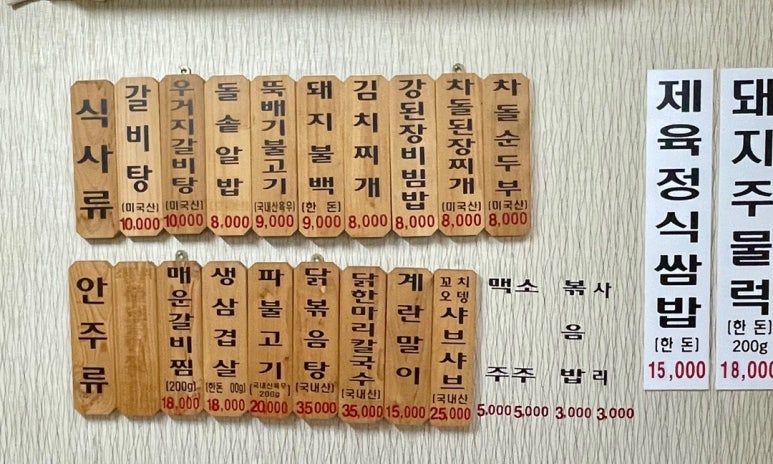 식사류
갈비탕
(미국산)
10,000
우거지갈비탕
(미국산)
10,000
돌솥알밥
8,000
뚝배기불고기
(국내산육우)
9,000
돼지불백
(한돈)
9,000
김치찌개
8,000
강된장비빔밥
8,000
차돌된장찌개
(미국산)
8,000
차돌순두부
(미국산)
8,000
안주류
매운갈비찜
(200g)
18,000
생삼겹살
(한돈 00g)
18,000
파불고기
(국내산육우)
200g
20,000
닭볶음탕
(국내산)
35,000
닭한마리칼국수
(국내산)
35,000
계란말이
15,000
꼬치오뎅
샤브샤브
(국내산
25,000
맥주
5,000
소주
5,000
볶음밥
3,000
사리
3,000
제육정식쌈밥
(한돈)
15,000
돼지주물럭
(한돈)
200g
18,000